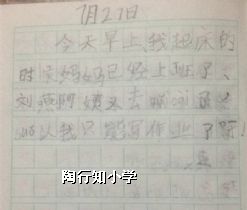 7月27日
今天早上,我起床的
时候妈妈已经上班了、
刘燕阿姨又去
suo以我只能写作业了呀!
陶行知小学